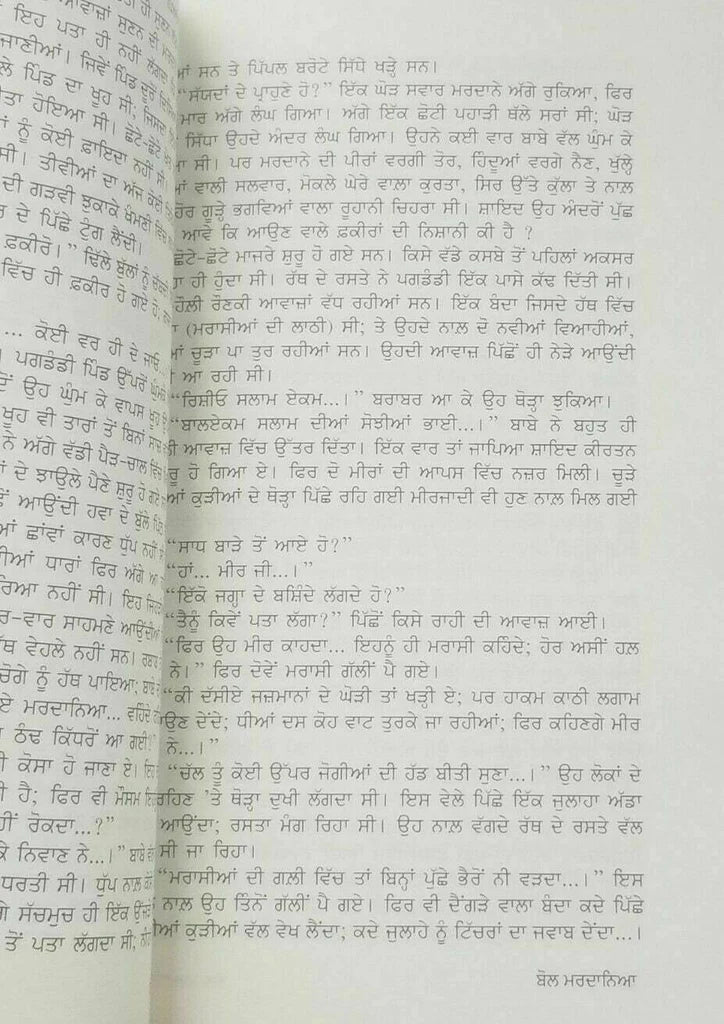 ਆਵਾਜ਼ਾਂ ਸੁਣਨ ਦੀ
ਇਹ ਪਤਾ ਹੀ ਨਹੀਂ ਲੱਗਦਾ
ਜਾਣੀਆਂ। ਜਿਵੇਂ ਪਿੰਡ ਦੂਰੋਂ
ਲੇ ਪਿੰਡ ਦਾ ਖੂਹ ਸੀ; ਜਿਸਦਾ
ਤਾ ਹੋਇਆ ਸੀ। ਛੋਟੇ-ਛੋਟੇ
ਨੂੰ ਕੋਈ ਫ਼ਾਇਦਾ ਨਹੀਂ ਸੀ।
ਸੀ। ਤੀਵੀਆਂ ਦਾ ਅੱਜ ਕੋਈ
ਦੀ ਗੜਵੀ ਝੁਕਾਕੇ ਖੰਮਣੀ ਵਿੱਚ
ਰ ਦੇ ਪਿੱਛੇ ਟੁੰਗ ਲੈਂਦੀ।
ਫ਼ਕੀਰੋ।” ਢਿੱਲੇ ਬੁੱਲਾਂ ਨੂੰ
ਵਿੱਚ ਹੀ ਫ਼ਕੀਰ ਹੋ ਗਏ ਹੋ,
... ਕੋਈ ਵਰ ਹੀ ਦੇ ਜਾਓ...
। ਪਗਡੰਡੀ ਪਿੰਡ ਉੱਪਰੋਂ ਘੁੰਮਕੇ
ਤੋਂ ਉਹ ਘੁੰਮ ਕੇ ਵਾਪਸ ਖੂਹ
ਖੂਹ ਵੀ ਤਾਰਾਂ ਤੋਂ ਬਿਨਾਂ ਸਾਜ਼
ਨੇ ਅੱਗੇ ਵੱਡੀ ਪੈੜ-ਚਾਲ ਵਿੱਚ
ਂ ਦੇ ਝਾਉਲੇ ਪੈਣੇ ਸ਼ੁਰੂ ਹੋ ਗਏ
ੋਂ ਆਉਂਦੀ ਹਵਾ ਦੇ ਬੁੱਲੇ
ਆਂ ਛਾਂਵਾਂ ਕਾਰਣ ਧੁੱਪ ਨਹੀਂ
ੀਆਂ ਧਾਰਾਂ ਫਿਰ ਅੱਗੇ ਆ
ਰਿਆ ਨਹੀਂ ਸੀ। ਇਹ
ਰ-ਵਾਰ ਸਾਹਮਣੇ ਆਉਂਦੀਆਂ
ੱਥ ਵੇਹਲੇ ਨਹੀਂ ਸਨ।
ਚੋਗੇ ਨੂੰ ਹੱਥ ਪਾਇਆ; ਬਾਬੇ
ਏ ਮਰਦਾਨਿਆ... ਵਹਿੰਦੇ
ਠੰਢ ਕਿੱਧਰੋਂ ਆ ਗਈ?
ੀ ਕੋਸਾ ਹੋ ਜਾਣਾ ਏ।
ੀ ਹੈ; ਫਿਰ ਵੀ ਮੌਸਮ
ਹੀਂ ਰੋਕਦਾ...?”
ਕੇ ਨਿਵਾਣ ਨੇ...।” ਬਾਬੇ
ਧਰਤੀ ਸੀ। ਧੁੱਪ ਨਾਲ਼
ਗੇ ਸੱਚਮੁਚ ਹੀ ਇੱਕ
ਤੋਂ ਪਤਾ ਲੱਗਦਾ ਸੀ;
ਆਂ ਸਨ ਤੇ ਪਿੱਪਲ ਬਰੋਟੇ ਸਿੱਧੇ ਖੜ੍ਹੇ ਸਨ।
“ਸੱਯਦਾਂ ਦੇ ਪ੍ਰਾਹੁਣੇ ਹੋ?” ਇੱਕ ਘੋੜ ਸਵਾਰ ਮਰਦਾਨੇ ਅੱਗੇ ਰੁਕਿਆ, ਫਿਰ
ਮਾਰ ਅੱਗੇ ਲੰਘ ਗਿਆ। ਅੱਗੇ ਇੱਕ ਛੋਟੀ ਪਹਾੜੀ ਥੱਲੇ ਸਰਾਂ ਸੀ; ਘੋੜ
ਸਿੱਧਾ ਉਹਦੇ ਅੰਦਰ ਲੰਘ ਗਿਆ। ਉਹਨੇ ਕਈ ਵਾਰ ਬਾਬੇ ਵੱਲ ਘੁੰਮ ਕੇ
ਾ ਸੀ। ਪਰ ਮਰਦਾਨੇ ਦੀ ਪੀਰਾਂ ਵਰਗੀ ਤੋਰ, ਹਿੰਦੂਆਂ ਵਰਗੇ ਨੈਣ, ਖੁੱਲ੍ਹੇ
ਆਂ ਵਾਲੀ ਸਲਵਾਰ, ਮੋਕਲੇ ਘੇਰੇ ਵਾਲ਼ਾ ਕੁਰਤਾ, ਸਿਰ ਉੱਤੇ ਕੁੱਲਾ ਤੇ ਨਾਲ਼
ਹੋਰ ਗੂੜ੍ਹੇ ਭਗਵਿਆਂ ਵਾਲਾ ਰੂਹਾਨੀ ਚਿਹਰਾ ਸੀ। ਸ਼ਾਇਦ ਉਹ ਅੰਦਰੋਂ ਪੁੱਛ
ਆਵੇ ਕਿ ਆਉਣ ਵਾਲੇ ਫ਼ਕੀਰਾਂ ਦੀ ਨਿਸ਼ਾਨੀ ਕੀ ਹੈ ?
ਛੋਟੇ-ਛੋਟੇ ਮਾਜਰੇ ਸ਼ੁਰੂ ਹੋ ਗਏ ਸਨ। ਕਿਸੇ ਵੱਡੇ ਕਸਬੇ ਤੋਂ ਪਹਿਲਾਂ ਅਕਸਰ
ਾ ਹੀ ਹੁੰਦਾ ਸੀ। ਰੱਥ ਦੇ ਰਸਤੇ ਨੇ ਪਗਡੰਡੀ ਇੱਕ ਪਾਸੇ ਕੱਢ ਦਿੱਤੀ ਸੀ।
ਹੋਲੀ ਰੌਣਕੀ ਆਵਾਜ਼ਾਂ ਵੱਧ ਰਹੀਆਂ ਸਨ। ਇੱਕ ਬੰਦਾ ਜਿਸਦੇ ਹੱਥ ਵਿੱਚ
ਾ (ਮਰਾਸੀਆਂ ਦੀ ਲਾਠੀ) ਸੀ; ਤੇ ਉਹਦੇ ਨਾਲ਼ ਦੋ ਨਵੀਂਆਂ ਵਿਆਹੀਆਂ,
ਆਂ ਚੂੜਾ ਪਾ ਤੁਰ ਰਹੀਆਂ ਸਨ। ਉਹਦੀ ਆਵਾਜ਼ ਪਿੱਛੋਂ ਹੀ ਨੇੜੇ ਆਉਂਦੀ
ਆ ਰਹੀ ਸੀ।
“ਰਿਸ਼ੀਓ ਸਲਾਮ ਏਕਮ...।” ਬਰਾਬਰ ਆ ਕੇ ਉਹ ਥੋੜ੍ਹਾ ਝੁਕਿਆ।
“ਬਾਲਏਕਮ ਸਲਾਮ ਦੀਆਂ ਸੋਝੀਆਂ ਭਾਈ...।” ਬਾਬੇ ਨੇ ਬਹੁਤ ਹੀ
ੀ ਆਵਾਜ਼ ਵਿੱਚ ਉੱਤਰ ਦਿੱਤਾ। ਇੱਕ ਵਾਰ ਤਾਂ ਜਾਪਿਆ ਸ਼ਾਇਦ ਕੀਰਤਨ
ਰੂ ਹੋ ਗਿਆ ਏ। ਫਿਰ ਦੋ ਮੀਰਾਂ ਦੀ ਆਪਸ ਵਿੱਚ ਨਜ਼ਰ ਮਿਲੀ। ਚੂੜੇ
ਆਂ ਕੁੜੀਆਂ ਦੇ ਥੋੜ੍ਹਾ ਪਿੱਛੇ ਰਹਿ ਗਈ ਮੀਰਜਾਦੀ ਵੀ ਹੁਣ ਨਾਲ਼ ਮਿਲ ਗਈ
“ਸਾਧ ਬਾੜੇ ਤੋਂ ਆਏ ਹੋ?”
“ਹਾਂ... ਮੀਰ ਜੀ...।”
“ਇੱਕੋ ਜਗ੍ਹਾ ਦੇ ਬਸ਼ਿੰਦੇ ਲੱਗਦੇ ਹੋ?”
“ਤੈਨੂੰ ਕਿਵੇਂ ਪਤਾ ਲੱਗਾ?” ਪਿੱਛੋਂ ਕਿਸੇ ਰਾਹੀ ਦੀ ਆਵਾਜ਼ ਆਈ।
“ਫਿਰ ਉਹ ਮੀਰ ਕਾਹਦਾ... ਇਹਨੂੰ ਹੀ ਮਰਾਸੀ ਕਹਿੰਦੇ; ਹੋਰ ਅਸੀਂ ਹਲ਼
ਨੇ।” ਫਿਰ ਦੋਵੇਂ ਮਰਾਸੀ ਗੱਲੀਂ ਪੈ ਗਏ।
“ਕੀ ਦੱਸੀਏ ਜਜ਼ਮਾਨਾਂ ਦੇ ਘੋੜੀ ਤਾਂ ਖੜ੍ਹੀ ਏ; ਪਰ ਹਾਕਮ ਕਾਠੀ ਲਗਾਮ
ਉਣ ਦੇਂਦੇ; ਧੀਆਂ ਦਸ ਕੋਹ ਵਾਟ ਤੁਰਕੇ ਜਾ ਰਹੀਆਂ; ਫਿਰ ਕਹਿਣਗੇ ਮੀਰ
ਨੇ...।”
“ਚੱਲ ਤੂੰ ਕੋਈ ਉੱਪਰ ਜੋਗੀਆਂ ਦੀ ਹੱਡ ਬੀਤੀ ਸੁਣਾ...।” ਉਹ ਲੋਕਾਂ ਦੇ
ਰਹਿਣ ’ਤੇ ਥੋੜ੍ਹਾ ਦੁਖੀ ਲੱਗਦਾ ਸੀ। ਇਸ ਵੇਲੇ ਪਿੱਛੇ ਇੱਕ ਜੁਲਾਹਾ ਅੱਡਾ
ਆਉਂਦਾ; ਰਸਤਾ ਮੰਗ ਰਿਹਾ ਸੀ। ਉਹ ਨਾਲ਼ ਵੱਗਦੇ ਰੱਥ ਦੇ ਰਸਤੇ ਵੱਲ
ਸੀ ਜਾ ਰਿਹਾ।
“ਮਰਾਸੀਆਂ ਦੀ ਗਲ਼ੀ ਵਿੱਚ ਤਾਂ ਬਿਨ੍ਹਾਂ ਪੁੱਛੇ ਭੈਰੋਂ ਨੀ ਵੜਦਾ...।” ਇਸ
ਨਾਲ਼ ਉਹ ਤਿੰਨੋਂ ਗੱਲੀਂ ਪੈ ਗਏ। ਫਿਰ ਵੀ ਦੈਂਗੜੇ ਵਾਲਾ ਬੰਦਾ ਕਦੇ ਪਿੱਛੇ
ੀਆਂ ਕੁੜੀਆਂ ਵੱਲ ਵੇਖ ਲੈਂਦਾ; ਕਦੇ ਜੁਲਾਹੇ ਨੂੰ ਟਿੱਚਰਾਂ ਦਾ ਜਵਾਬ ਦੇਂਦਾ...।
ਬੋਲ ਮਰਦਾਨਿਆ